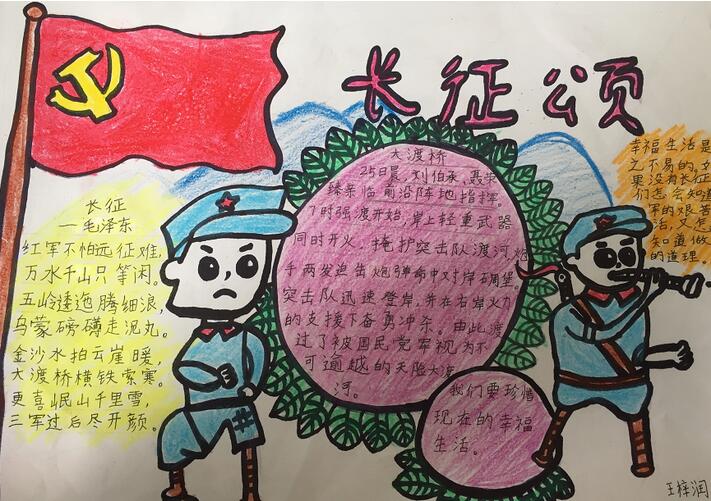 长征颂
长征
—毛泽东
红军不怕远征难,
万水千山只等闲。
五岭逶迤腾细浪,
乌蒙磅礴走泥丸。
金沙水拍云崖暖,
大渡桥横铁索寒。
更喜岷山千里雪,
三军过后尽开颜。
大渡桥
25日晨,刘伯承、聂荣
臻亲临前沿阵地指挥。
7时强渡开始,岸上轻重武器
同时开火,掩护突击队渡河,炮
手两发迫击炮弹命中对岸碉堡。
突击队迅速登岸,并在右岸火力
的支援下奋勇冲杀。由此渡
过了被国民党军视为不
可逾越的天险大渡
河。
我们要珍惜
现在的幸福
生活。
幸福生活是
之不易的,如
果没有长征
们怎会知道
的艰苦
活,又怎
知道做
的道理
王梓润